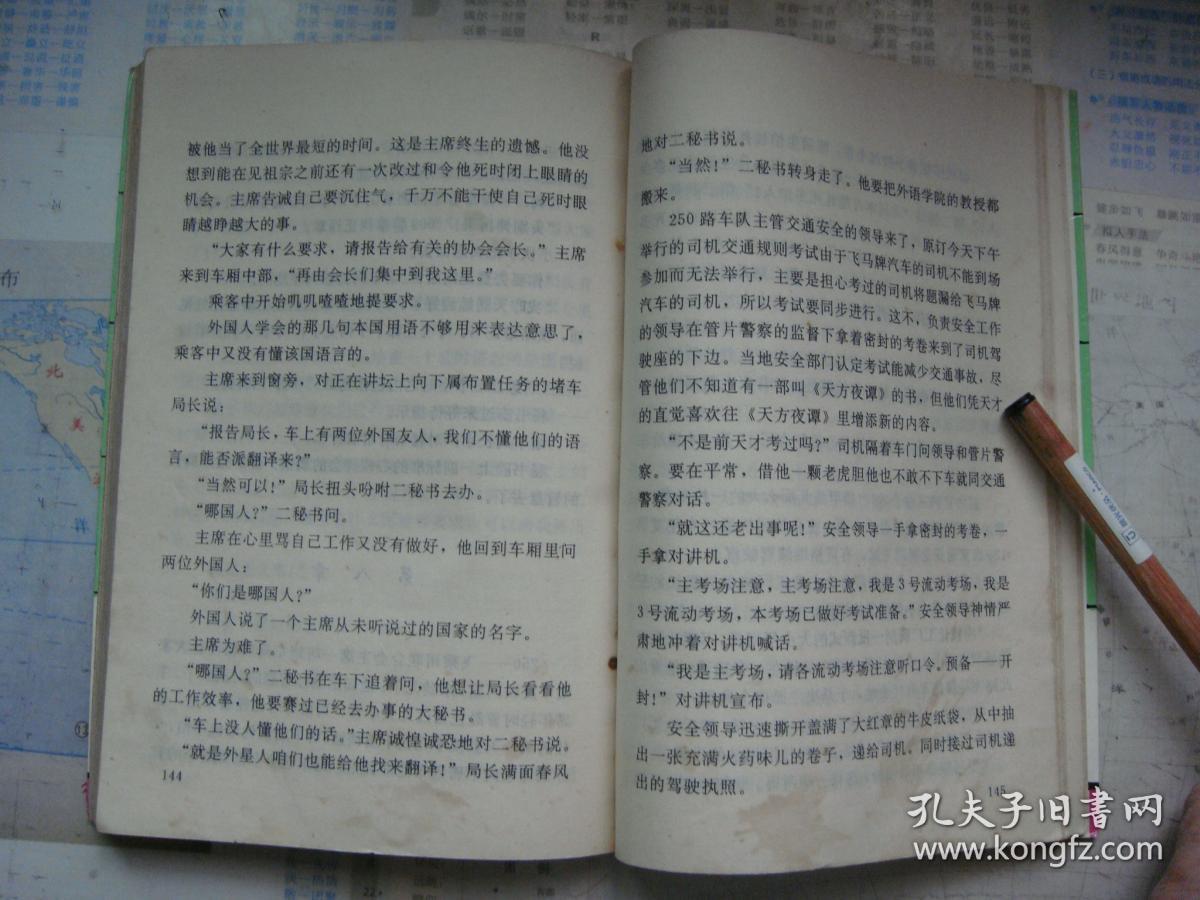 被他当了全世界最短的时间。这是主席终生的遗憾。他没
想到能在见祖宗之前还有一次改过和令他死时闭上眼睛的
机会。主席告诫自己要沉住气，千万不能干使自己死时眼
睛越睁越大的事。
“大家有什么要求，请报告给有关的协会会长。”主席
来到车厢中部，“再由会长们集中到我这里。”
乘客中开始叽叽喳喳地提要求。
外国人学会的那几句本国用语不够用来表达意思了，
乘客中又没有懂该国语言的。
主席来到窗旁，对正在讲坛上向下属布置任务的堵车
局长说：
“报告局长，车上有两位外国友人，我们不懂他们的语
言，能否派翻译来？”
“当然可以！”局长扭头吩咐二秘书去办。
“哪国人？”二秘书问。
主席在心里骂自己工作又没有做好，他回到车厢里问
两位外国人：
“你们是哪国人？”
外国人说了一个主席从未听说过的国家的名字。
主席为难了。
“哪国人？”二秘书在车下追着问，他想让局长看看他
的工作效率，他要赛过已经去办事的大秘书。
“车上没人懂他们的话。”主席诚惶诚恐地对二秘书说。
“就是外星人咱们也能给他找来翻译！”局长满面春风
144
地对二秘书说。
“当然！”二秘书转身走了。他要把外语学院的教授都
搬来。
250 路车队主管交通安全的领导来了，原订今天下午
举行的司机交通规则考试由于飞马牌汽车的司机不能到场
参加而无法举行，主要是担心考过的司机将题漏给飞马牌
汽车的司机，所以考试要同步进行。这不，负责安全工作
的领导在管片警察的监督下拿着密封的考卷来到了司机驾
驶座的下边。当地安全部门认定考试能减少交通事故，尽
管他们不知道有一部叫《天方夜谭》的书，但他们凭天才
的直觉喜欢往《天方夜谭》里增添新的内容。
“不是前天才考过吗？”司机隔着车门问领导和管片警
察。要在平常，借他一颗老虎胆他也不敢不下车就同交通
警察对话。
“就这还老出事呢！”安全领导一手拿密封的考卷，一
手拿对讲机。
“主考场注意，主考场注意，我是 3 号流动考场，我是
3 号流动考场，本考场已做好考试准备。”安全领导神情严
肃地冲着对讲机喊话。
“我是主考场，请各流动考场注意听口令。预备——开
封！”对讲机宣布。
安全领导迅速撕开盖满了大红章的牛皮纸袋，从中抽
出一张充满火药味儿的卷子，递给司机，同时接过司机递
出的驾驶执照。
145
孔夫子旧书网
www.kongfz.com
布
北
美
洋
拟人手法
春风得意
22